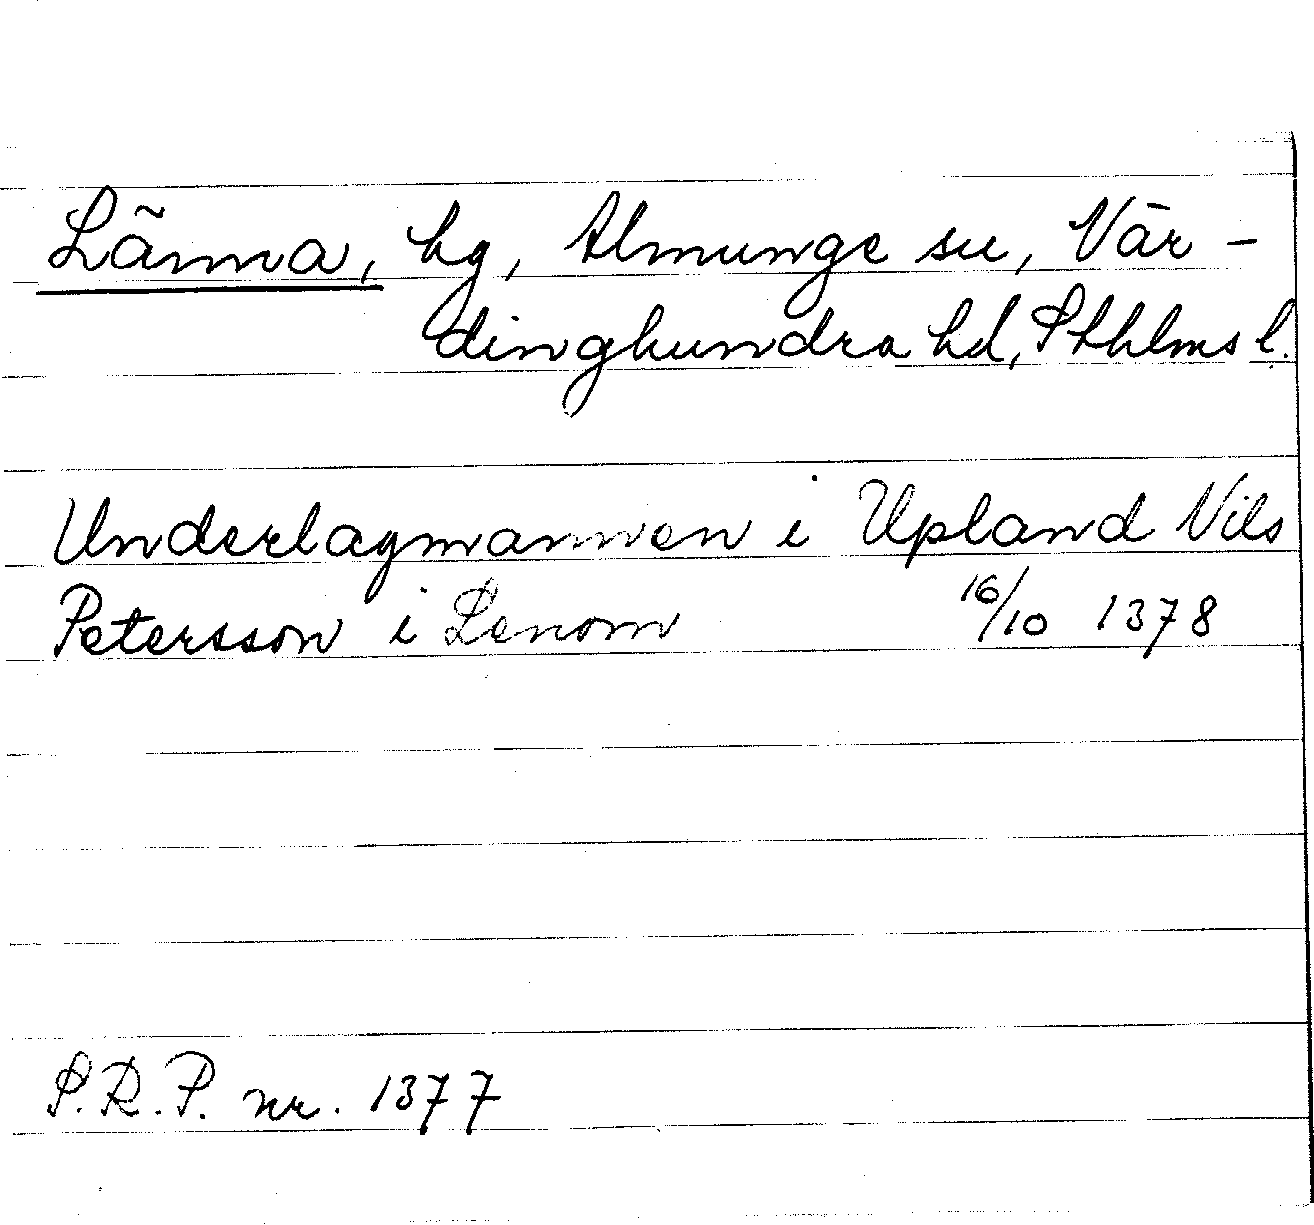 Länna, hg, Almunge sn, Vär-
dinghundra hd, Sthlms l.
Underlagmannen i Upland Nils
Petersson i Lenom 16/10 1378
S.R.P. nr. 1377